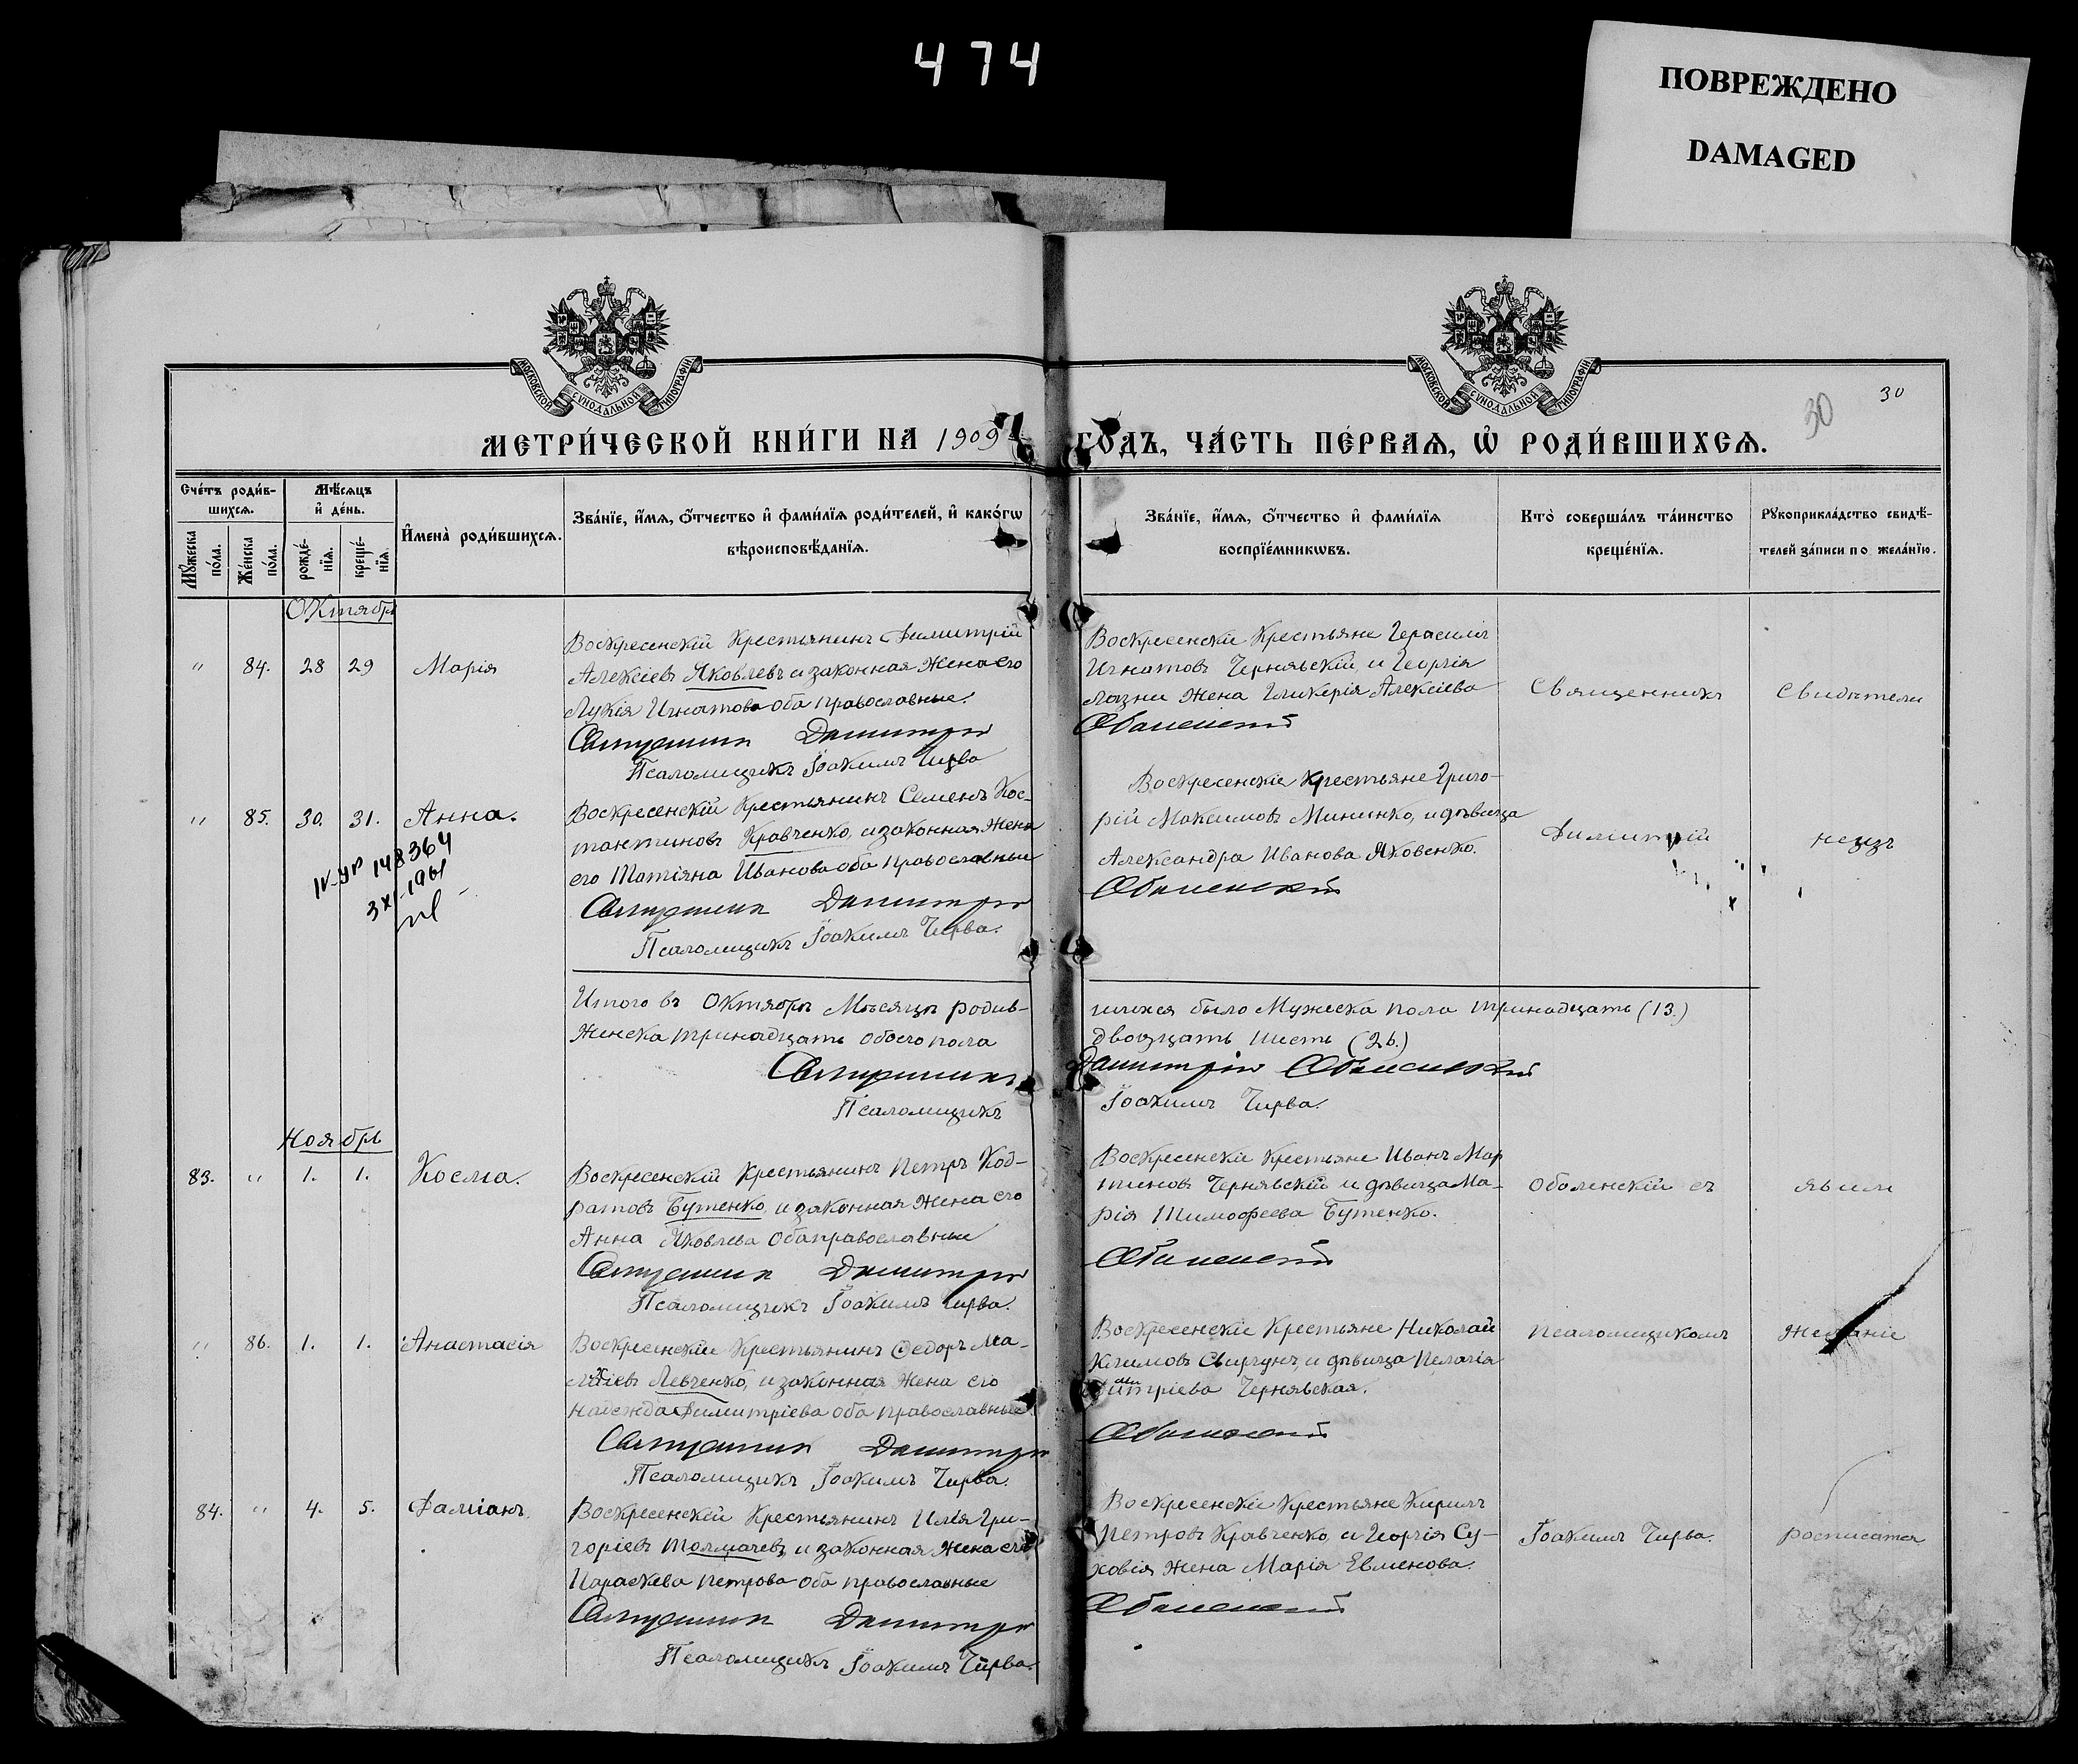 474
ПОВРЕЖДЕНО
DAMAGED
МОСКОВСКОЙ СѴНОДАЛЬНОЙ ТИПОГРАФІИ.
МОСКОВСКОЙ СѴНОДАЛЬНОЙ ТИПОГРАФІИ.
30
30
МЕТРИ́ЧЕСКОЙ КНИ́ГИ НА 1909
ГОДЪ, ЧА́СТЬ ПЕ́РВАѦ, Ѡ҆ РОДИ́ВШИХСѦ.
Сче́тъ роди́в-
шихсѧ.
Мꙋ́жеска по́ла.
Же́нска по́ла.
Мѣ́сѧцъ
и҆ де́нь.
рожде́-
нїѧ.
креще́-
нїѧ.
И҆мена̀ роди́вшихсѧ.
Зва́нїе, и҆́мѧ, ѻ҆́тчество и҆ фами́лїѧ роди́телей, и҆ како́гѡ
вѣроисповѣ́данїѧ.
Зва́нїе, и҆́мѧ, ѻ҆́тчество и҆ фами́лїѧ
воспрїе́мникѡвъ.
Кто̀ соверша́лъ та́инство
креще́нїѧ.
Рꙋкоприкла́дство свидѣ́-
телей за́писи по жела́нїю.
Октябрь
" 84. 28 29 Марія
Воскресенскій Крестьянинъ Димитрій
Алексіевъ Яковлевъ и законная жена его
Лукія Игнатова оба православные.
Священникъ Димитрій
Псаломщикъ Іоакимъ Чирва
Воскресенскіе Крестьяне Герасимъ
Игнатовъ Чернявскій и Георгія
Лазни жена Гликерія Алексіева
Оболенскій
Священникъ
Свидѣтели
" 85. 30. 31. Анна.
IV-УР 148364
3 XI-1961
Воскресенскій Крестьянинъ Семенъ Кос-
тантиновъ Кравченко, и законная жена
его Татіяна Иванова оба православные
Священникъ Димитрій
Псаломщикъ Іоакимъ Чирва.
Воскресенскіе Крестьяне Григо-
рій Максимовъ Мининко, и дѣвица
Александра Иванова Яковенко.
Оболенскій
Димитрій
Итого въ Октябрѣ Мѣсяцѣ родив-
шихся было Мужеска пола тринадцать (13.)
Женска тринадцать обоего пола
двадцать шесть (26.)
Священникъ
Димитрій Оболенскій
Псаломщикъ
Іоакимъ Чирва.
Ноябрь
83. " 1. 1. Косма.
Воскресенскій Крестьянинъ Петръ Код-
ратовъ Бутенко, и законная жена его
Анна Яковлева оба православные
Священникъ Димитрій
Псаломщикъ Іоакимъ Чирва.
Воскресенскіе Крестьяне Иванъ Мар
тиновъ Чернявскій и дѣвица Ма-
рія Тимофеева Бутенко.
Оболенскій
Оболенскій съ
явили
" 86. 1. 1. Анастасія
Воскресенскіе Крестьянинъ Ѳедоръ Ма-
Левченко, и законная жена его
Надежда Димитріева оба православные
Священникъ Димитрій
Псаломщикъ Іоакимъ Чирва.
Воскресенскіе Крестьяне Николай
Климовъ Свиргунъ, и дѣвица Пелагія
Димитріева Чернявская.
Оболенскій
псаломщикомъ
желаніе
84. " 4. 5. Даміанъ.
Воскресенскій Крестьянинъ Илія Гри-
горіевъ Толмачевъ, и законная жена его
Параскева Петрова оба православные
Священникъ Димитрій
Псаломщикъ Іоакимъ Чирва.
Воскресенскіе Крестьяне Кирилъ
Петровъ Кравченко, и Георгія Су-
ховія жена Марія Евменова.
Оболенскій
Іоакимъ Чирва.
росписатся